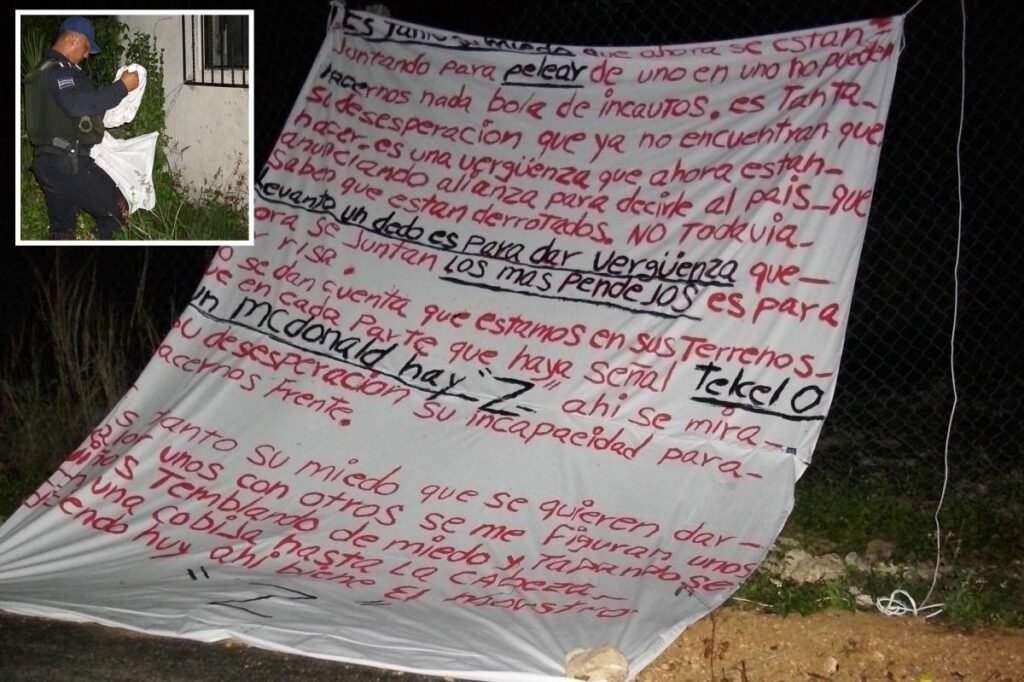 Es Tanto su miedo que ahora se estan-
Juntando para pelear de uno en uno no pueden
hacernos nada bola de incautos. es Tanta-
su desesperacion que ya no encuentran que
hacer. es una vergüenza que ahora estan-
anunciando alianza para decirle al pais-que
saben que estan derrotados. NO Todavia-
Levanto un dedo es para dar vergüenza que-
ora se juntan los mas pendejos es para
risa.
o se dan cuenta que estamos en sus Terrenos-
ue en cada parte que haya señal Telcel O
un mcdonald hay "Z" ahi se mira-
su desesperacion su incapacidad para-
acernos frente.
s Tanto su miedo que se quieren dar-
alor unos con otros se me figuran unos
iños Temblando de miedo y Tapandose
en una cobija hasta La cabeza-
iciendo huy ahi biene El moustro
"Z"